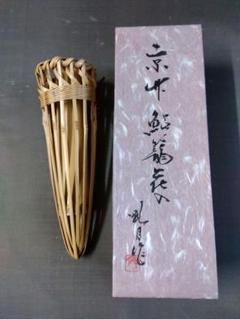 京竹 鮎籠花入
凡月作